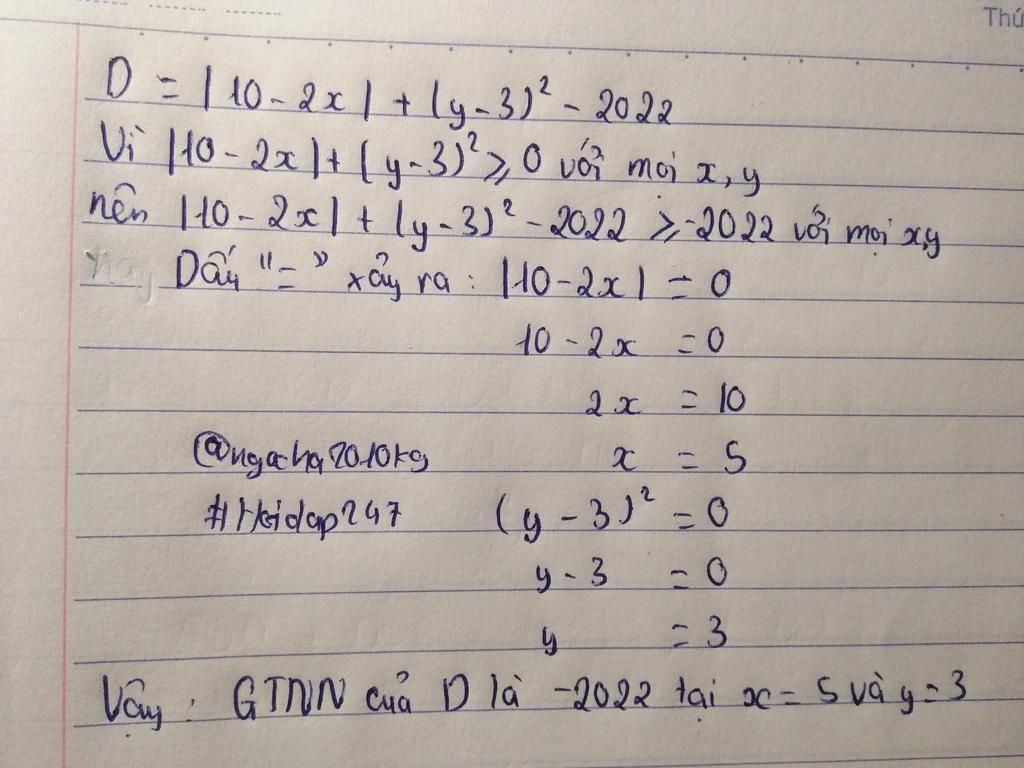 Thứ
D = |10 - 2x| + (y - 3)² - 2022
Vì |10 - 2x| + (y - 3)² ≥ 0 với mọi x, y
nên |10 - 2x| + (y - 3)² - 2022 ≥ -2022 với mọi x,y
Dấu "=" xảy ra : |10 - 2x| = 0
10 - 2x = 0
2x = 10
@ngocha2010kg x = 5
#Hoidap247 (y - 3)² = 0
y - 3 = 0
y = 3
Vậy : GTNN của D là -2022 tại x = 5 và y = 3